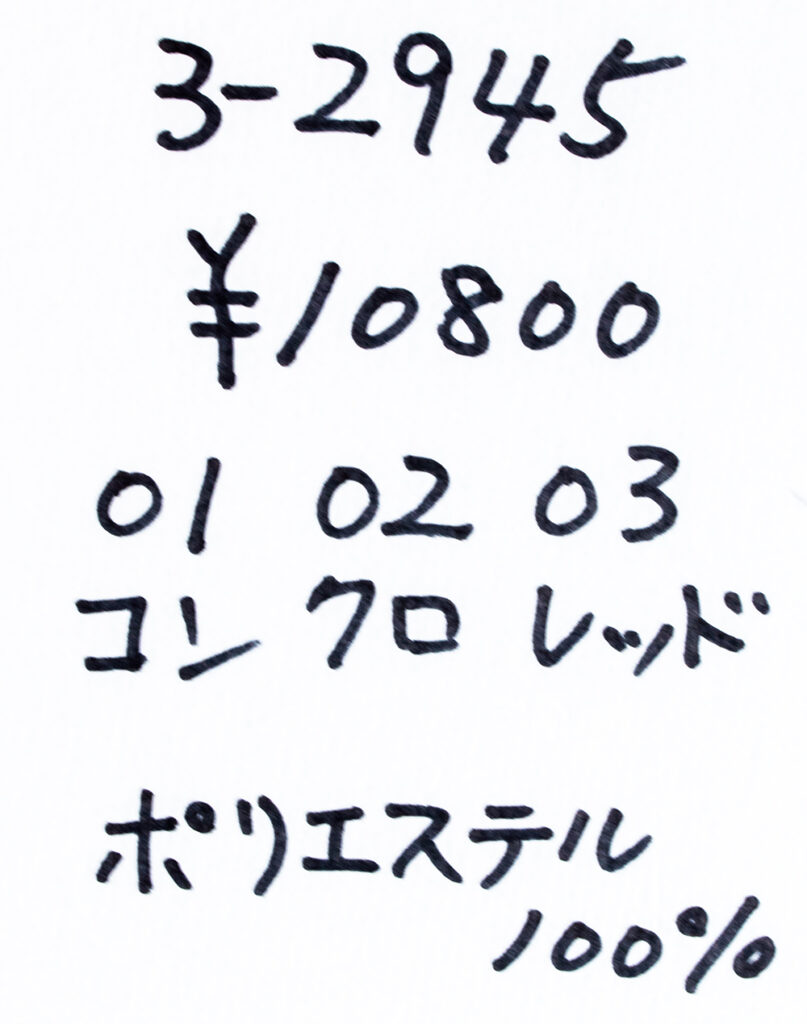 3-2945
¥10800
01 02 03
コン クロ レッド
ポリエステル
100%